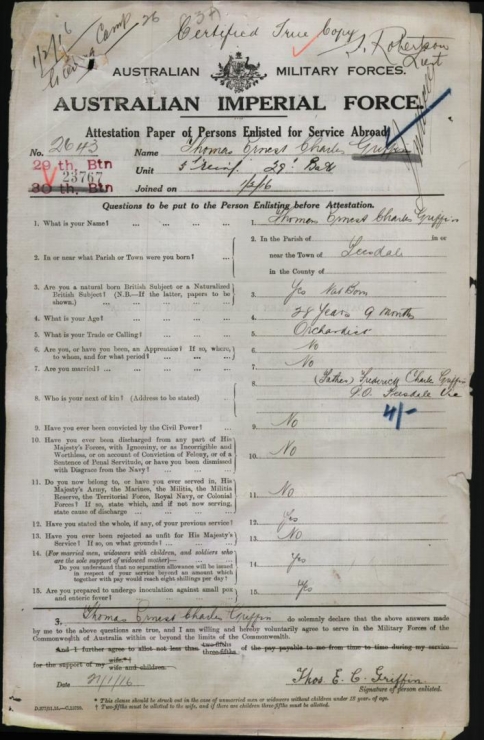 Certified True Copy
1/2/16
Camp
J. Robertson
Lieut
AUSTRALIAN MILITARY FORCES.
AUSTRALIAN IMPERIAL FORCE.
Attestation Paper of Persons Enlisted for Service Abroad
No. 2643 Name Thomas Ernest Charles Griffin
29th, Btn
23767
30th, Btn
Unit 29th Batt
Joined on 1/2/16
Questions to be put to the Person Enlisting before Attestation.
1. What is your Name? ... ... ... 1. Thomas Ernest Charles Griffin
2. In or near what Parish or Town were you born? ... 2. In the Parish of in or
near the Town of Teesdale
in the County of
3. Are you a natural born British Subject or a Naturalized
British Subject? (N.B.—If the latter, papers to be
shown.) ... 3. Yes Nat Born
4. What is your Age? ... 4. 28 Years 9 months
5. What is your Trade or Calling? ... 5. Orchardist
6. Are you, or have you been, an Apprentice? If so, where,
to whom, and for what period? ... 6. No
7. Are you married? ... 7. No
8. Who is your next of kin? (Address to be stated) 8. (Father) Frederick Charles Griffin
P.O. Teesdale Vic
4/-
9. Have you ever been convicted by the Civil Power? ... 9. No
10. Have you ever been discharged from any part of His
Majesty's Forces, with Ignominy, or as Incorrigible and
Worthless, or on account of Conviction of Felony, or of a
Sentence of Penal Servitude, or have you been dismissed
with Disgrace from the Navy? ... 10. No
11. Do you now belong to, or have you ever served in, His
Majesty's Army, the Marines, the Militia, the Militia
Reserve, the Territorial Force, Royal Navy, or Colonial
Forces? If so, state which, and if not now serving,
state cause of discharge ... 11. No
12. Have you stated the whole, if any, of your previous service? 12. Yes
13. Have you ever been rejected as unfit for His Majesty's
Service? If so, on what grounds? ... 13. No
14. (For married men, widowers with children, and soldiers who
are the sole support of widowed mother)—
Do you understand that no separation allowance will be issued
in respect of your service beyond an amount which
together with pay would reach eight shillings per day? 14. Yes
15. Are you prepared to undergo inoculation against small pox
and enteric fever? 15. Yes
3. Thomas Ernest Charles Griffin do solemnly declare that the above answers made
by me to the above questions are true, and I am willing and hereby voluntarily agree to serve in the Military Forces of the
Commonwealth of Australia within or beyond the limits of the Commonwealth.
And I further agree to allot not less than two-fifths three-fifths of the pay payable to me from time to time during my service
for the support of my wife* wife and children.
Date 27/1/16 Thos. E. C. Griffin
Signature of person enlisted.
* This clause should be struck out in the case of unmarried men or widowers without children under 18 years of age.
† Two-fifths must be allotted to the wife, and if there are children three-fifths must be allotted.